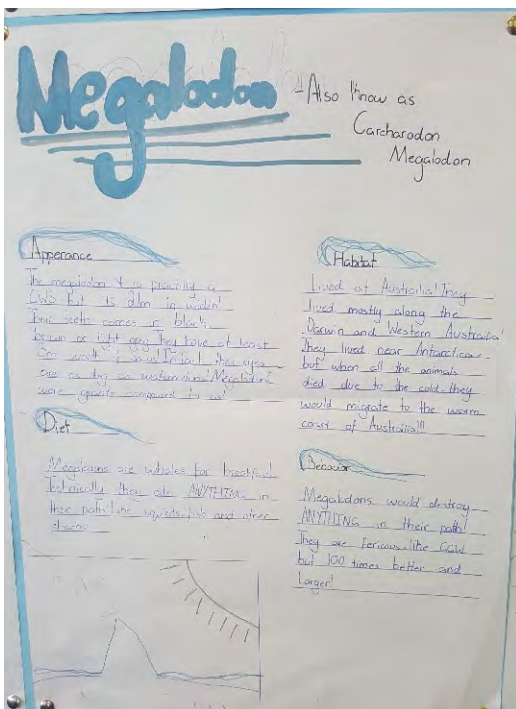 Megalodon
-Also know as
Carcharodon
Megalodon
Apperance
The megalodon is practilly a
GWS but its 20m in widin!
Their teeth comes in black,
brown or light grey. They have at least
teeth in total! In fact, their eyes
are as big as watermelons! Megalodons
were giants compared to us!
Diet
Megalodons ate whales for breakfast!
Technically they ate ANYTHING in
their path! Like squids, fish and other
sharks
Habitat
Lived at Austrailia! They
lived mostly along the
Darwin and Western Austrailia!
They lived near Antarctica
but when all the animals
died due to the cold. they
would migrate to the warm
coast of Austrailia!!!
Behavior
Megalodons would destroy
ANYTHING in their path!
They are fericous, like GSW
but 100 times better and
Larger!